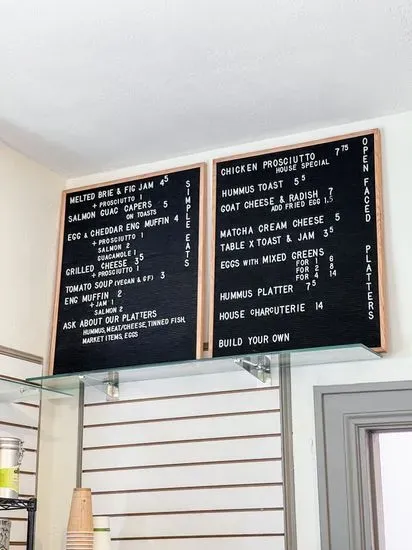 MELTED BRIE & FIG JAM 4⁵
+ PROSCIUTTO 1
SALMON GUAC CAPERS 5
ON TOASTS
EGG & CHEDDAR ENG MUFFIN 4
+ PROSCIUTTO 1
SALMON 2
GUACAMOLE 1
GRILLED CHEESE 3⁵
+ PROSCIUTTO 1
TOMATO SOUP (VEGAN & GF) 3
ENG MUFFIN 2
+ JAM 1
SALMON 2
ASK ABOUT OUR PLATTERS
HUMMUS, MEAT/CHEESE, TINNED FISH,
MARKET ITEMS, EGGS
SIMPLE EATS
CHICKEN PROSCIUTTO 7⁷⁵
HOUSE SPECIAL
HUMMUS TOAST 5⁵
GOAT CHEESE & RADISH 7
ADD FRIED EGG 1.5
MATCHA CREAM CHEESE 5
TABLE X TOAST & JAM 3⁵
EGGS WITH MIXED GREENS
FOR 1 6
FOR 2 8
FOR 4 14
HUMMUS PLATTER 7⁵
HOUSE CHARCUTERIE 14
BUILD YOUR OWN
OPEN FACED
PLATTERS